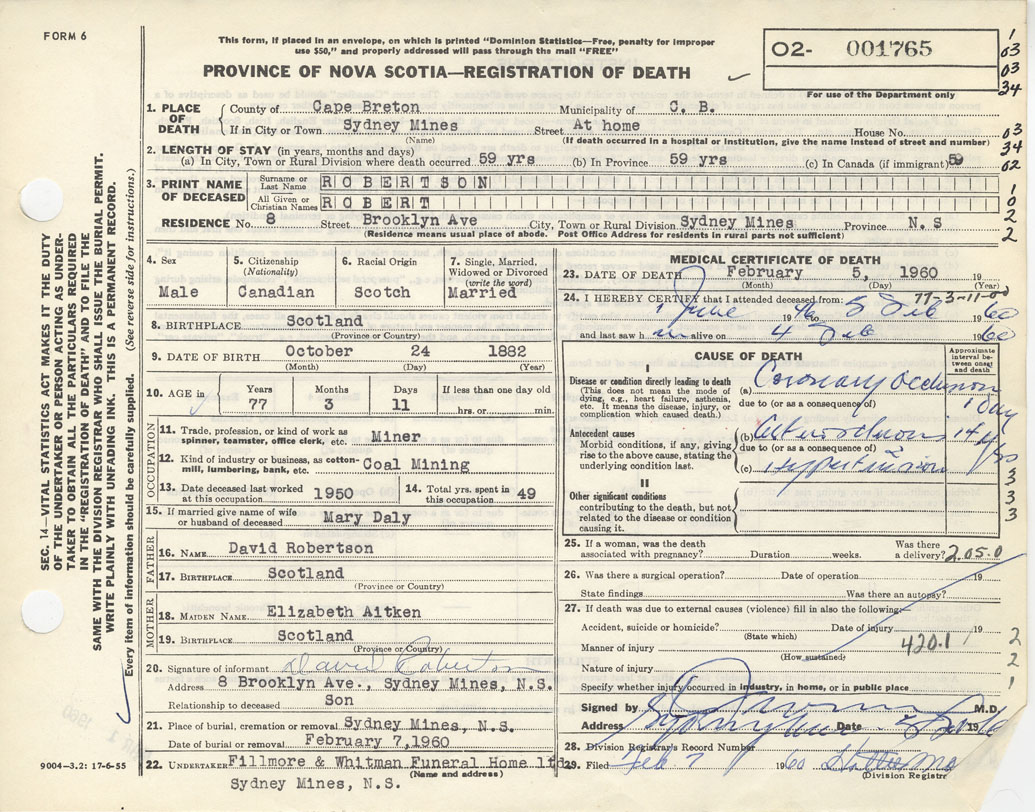 FORM 6
This form, if placed in an envelope, on which is printed "Dominion Statistics—Free, penalty for improper
use $50," and properly addressed will pass through the mail "FREE"
PROVINCE OF NOVA SCOTIA—REGISTRATION OF DEATH
02- 001765
For use of the Department only
1
03
03
34
03
34
02
1
0
2
2
SEC. 14—VITAL STATISTICS ACT MAKES IT THE DUTY
OF THE UNDERTAKER OR PERSON ACTING AS UNDER-
TAKER TO OBTAIN ALL THE PARTICULARS REQUIRED
IN THE "REGISTRATION OF DEATH" AND TO FILE THE
SAME WITH THE DIVISION REGISTRAR WHO SHALL ISSUE THE BURIAL PERMIT.
WRITE PLAINLY WITH UNFADING INK. THIS IS A PERMANENT RECORD.
Every item of information should be carefully supplied. (See reverse side for instructions.)
1. PLACE OF DEATH
County of Cape Breton Municipality of C. B.
If in City or Town Sydney Mines Street At home House No.
(Name) (If death occurred in a hospital or institution, give the name instead of street and number)
2. LENGTH OF STAY (in years, months and days)
(a) In City, Town or Rural Division where death occurred 59 yrs (b) In Province 59 yrs (c) In Canada (if immigrant) 59
3. PRINT NAME OF DECEASED
Surname or Last Name ROBERTSON
All Given or Christian Names ROBERT
RESIDENCE No. 8 Street Brooklyn Ave City, Town or Rural Division Sydney Mines Province N. S
(Residence means usual place of abode. Post Office Address for residents in rural parts not sufficient)
4. Sex
Male
5. Citizenship
(Nationality)
Canadian
6. Racial Origin
Scotch
7. Single, Married,
Widowed or Divorced
(write the word)
Married
8. BIRTHPLACE Scotland
(Province or Country)
9. DATE OF BIRTH October 24 1882
(Month) (Day) (Year)
10. AGE in
Years Months Days If less than one day old
77 3 11 hrs. or min.
OCCUPATION
11. Trade, profession, or kind of work as
spinner, teamster, office clerk, etc. Miner
12. Kind of industry or business, as cotton-
mill, lumbering, bank, etc. Coal Mining
13. Date deceased last worked
at this occupation 1950
14. Total yrs. spent in
this occupation 49
15. If married give name of wife
or husband of deceased Mary Daly
FATHER
16. NAME David Robertson
17. BIRTHPLACE Scotland
(Province or Country)
MOTHER
18. MAIDEN NAME Elizabeth Aitken
19. BIRTHPLACE Scotland
(Province or Country)
20. Signature of informant David Robertson
Address 8 Brooklyn Ave., Sydney Mines, N.S.
Relationship to deceased Son
21. Place of burial, cremation or removal Sydney Mines, N.S.
Date of burial or removal February 7,1960
22. UNDERTAKER Fillmore & Whitman Funeral Home ltd.
(Name and address)
Sydney Mines, N.S.
9004—3.2: 17-6-55
MEDICAL CERTIFICATE OF DEATH
23. DATE OF DEATH February 5, 1960 19
(Month) (Day) (Year)
77-3-11-00
24. I HEREBY CERTIFY that I attended deceased from:
1 June 1946 to 5 Feb 1960
and last saw him alive on 4 Feb 1960
CAUSE OF DEATH
Approximate
interval be-
tween onset
and death
I
Disease or condition directly leading to death
(This does not mean the mode of
dying, e.g., heart failure, asthenia,
etc. It means the disease, injury, or
complication which caused death.)
(a) Coronary Occlusion
due to (or as a consequence of) 1 day
Antecedent causes
Morbid conditions, if any, giving
rise to the above cause, stating the
underlying condition last.
(b) 14 yrs
due to (or as a consequence of)
(c) Hypertension
II
Other significant conditions
contributing to the death, but not
related to the disease or condition
causing it.
3
3
3
3
25. If a woman, was the death
associated with pregnancy? Duration weeks. Was there
a delivery? 205.0
26. Was there a surgical operation? Date of operation 19
State findings Was there an autopsy?
27. If death was due to external causes (violence) fill in also the following:—
Accident, suicide or homicide? Date of injury 19
(State which)
Manner of injury 420.1
(How sustained)
Nature of injury
Specify whether injury occurred in industry, in home, or in public place
2
2
1
Signed by M.D.
Address Sydney Mines Date 5 Feb 1960
28. Division Registrar's Record Number
29. Filed Feb 7 1960
(Division Registrar